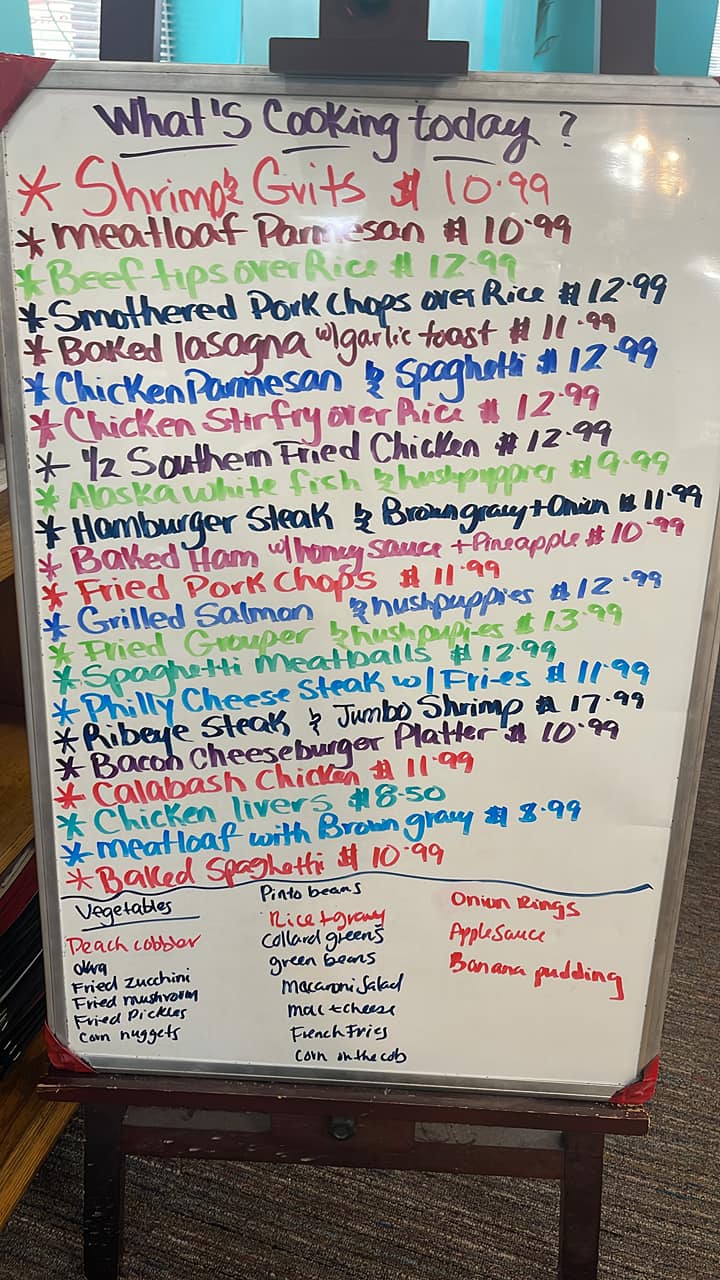 What's Cooking today?
* Shrimp & Grits $ 10.99
* meatloaf Parmesan $ 10.99
* Beef tips over Rice $ 12.99
* Smothered Pork Chops over Rice $ 12.99
* Baked lasagna w/garlic toast $ 11.99
* Chicken Parmesan & Spaghetti $ 12.99
* Chicken Stirfry over Rice $ 12.99
* 1/2 Southern Fried Chicken $ 12.99
* Alaska white fish & hushpuppies $ 9.99
* Hamburger Steak & Brown gravy + Onion $ 11.99
* Baked Ham w/honey sauce + Pineapple $ 10.99
* Fried Pork Chops $ 11.99
* Grilled Salmon & hushpuppies $ 12.99
* Fried Grouper & hushpupies $ 13.99
* Spaghetti Meatballs $ 12.99
* Philly Cheese Steak w/ Fries $ 11.99
* Ribeye Steak & Jumbo Shrimp $ 17.99
* Bacon Cheeseburger Platter $ 10.99
* Calabash Chicken $ 11.99
* Chicken livers $ 8.50
* meatloaf with Brown gravy $ 8.99
* Baked Spaghetti $ 10.99
Vegetables
Peach cobbler
Okra
Fried zucchini
Fried mushroom
Fried Pickles
Corn nuggets
Pinto beans
Rice + gravy
Collard greens
green beans
Macaroni Salad
Mac + cheese
French Fries
Corn on the cob
Onion Rings
Apple Sauce
Banana pudding